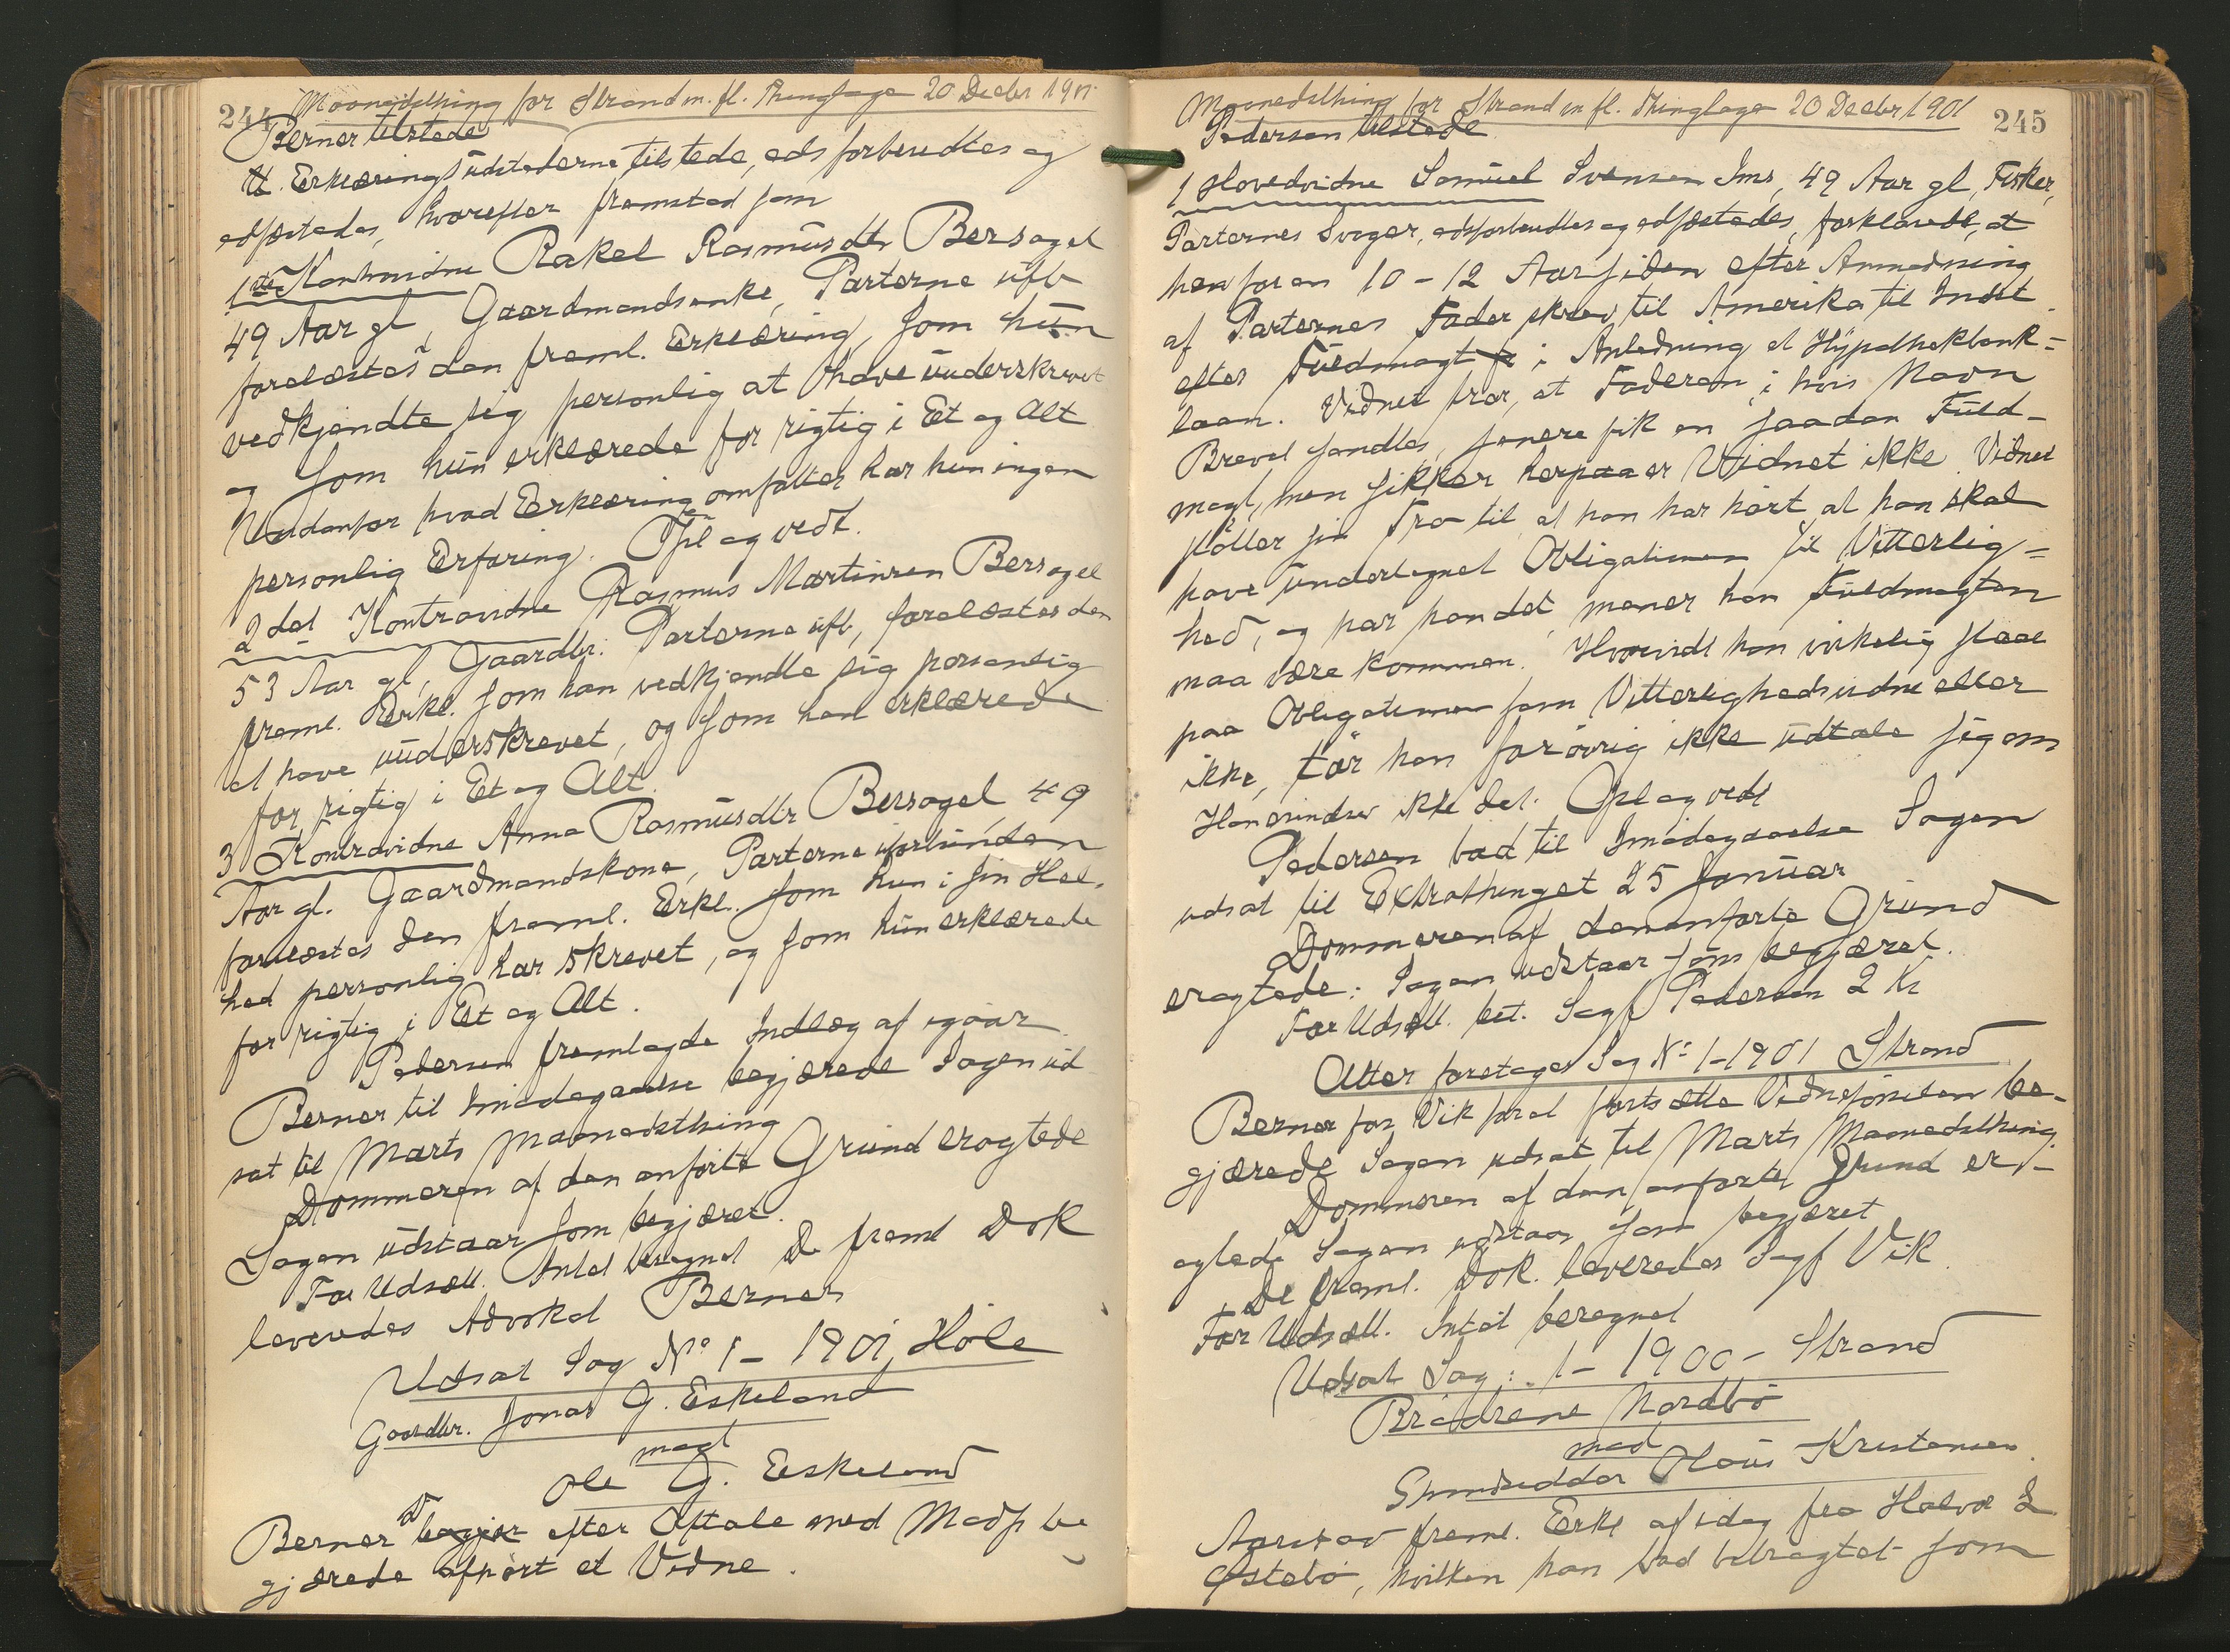 244 Maanedsthing for Strand m. fl. Thinglage 20 Decbr 1901
Berner tilstede
Erklæringsudstederne tilstede, eds forberedtes og
edfæstedes, hvorefter fremstod som
1ste Kontravidne Rakel Rasmusdtr Bersagel
49 Aar gl, Gaardmandsenke, Parterne ufb
forelæstes den freml. Erklæring, som hun
vedkjendte sig personlig at have underskrevet
og som hun erklærede for rigtig i Et og Alt
Udenfor hvad Erklæringen omfatter har hun ingen
personlig Erfaring. Opl og vedt.
2det Kontravidne Rasmus Martinsen Bersagel
53 Aar gl, Gaardbr. Parterne ufb, forelæstes den
freml. Erkl. som han vedkjendte sig personlig
at have underskrevet, og som han erklærede
for rigtig i Et og Alt.
3 Kontravidne Anna Rasmusdtr Bersagel, 49
Aar gl. Gaardmandskone, Parterne uforbunden
forelæstes den freml. Erkl. som hun i sin Hel-
hed personlig har skrevet, og som hun erklærede
for rigtig i Et og Alt.
Pedersen fremlagde Indlæg af igaar
Berner til Imødegaaelse begjærede Sagen ud
sat til Marts Maanedsthing
Dommeren af den anførte Grund eragtede
Sagen udstaar som begjæret.
For Udsætt. Intet beregnet De freml Dok
leveredes Advokat Berner
Udsat Sag No 1 - 1901 Høle
Gaardbr. Jonas G. Eskeland
mod
Ole G. Eskeland
Berner begjær efter Aftale med Modp be
gjærede afhørt et Vidne.
Maanedsthing for Strand m fl. Thinglage 20 Decbr 1901 245
Pedersen tilstede
1 Hovedvidne Samuel Svensen Ims, 49 Aar gl, Fisker,
Parternes Svoger, edsforberedtes og edfæstedes, forklarede, at
han for en 10 - 12 Aar siden efter Anmodning
af Parternes Fader skrev til Amerika til Indst
efter Fuldmagt i Anledning et Hypothekbank-
laan. Vidnet tror, at Faderen, i hvis Navn
Brevet sendtes, senere fik en saadan Fuld-
magt, men sikker herpaa er Vidnet ikke. Vidnet
støtter sin Tro til, at han har hørt at han skal
have undertegnet Obligationen til Vitterlig-
hed, og har han det, mener han Fuldmagten
maa være kommen. Hvorvidt han virkelig staar
paa Obligationen som Vitterlighedsvidne eller
ikke, tør han forøvrig ikke udtale sig om
Han erindrer ikke det. Opl og vedt
Pedersen bad til Imødegaaelse Sagen
udsat til Extrathinget 25 Januar
Dommeren af den anførte Grund
eragtede: Sagen udstaar som begjæret.
For Udsætt. bet. Sagf Pedersen 2 Kr
Atter foretages Sag No 1-1901 Strand
Berner for Vik foral fortsætte Vidneførselen be-
gjærede Sagen udsat til Marts Maanedsthing.
Dommeren af den anførte Grund er-
agtede Sagen udstaar som begjæret
De freml. Dok. leveredes Sagf Vik.
For Udsætt. Intet beregnet
Udsat Sag: 1 - 1900 - Strand
Brødrene Nordbø
mod
Olaus Kristensen
Aarstad freml. Erkl af idag fra Halvor L
Østebø, hvilken han bad betragtet som